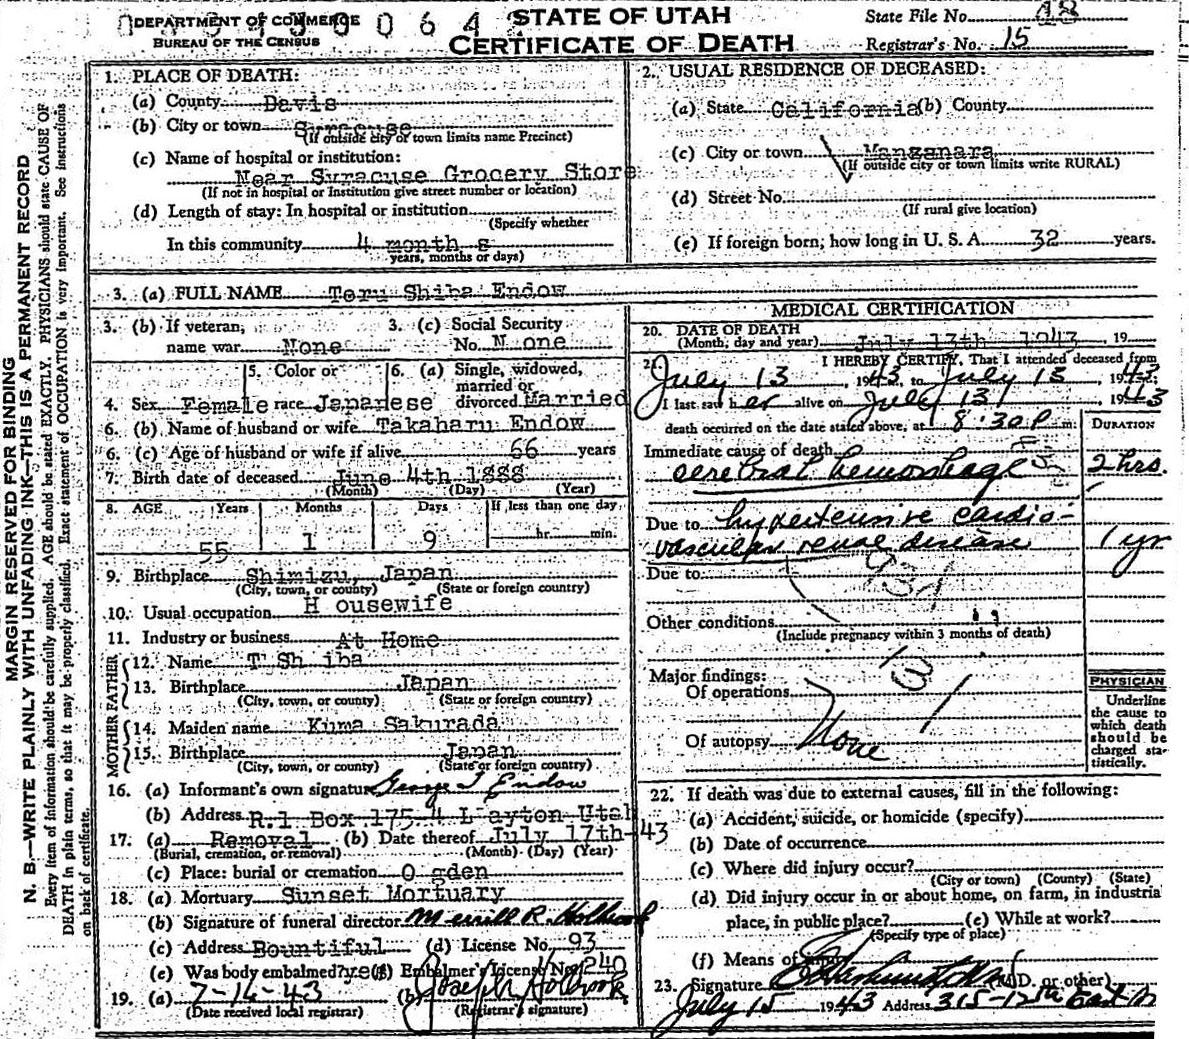 DEPARTMENT OF COMMERCE
BUREAU OF THE CENSUS
STATE OF UTAH
CERTIFICATE OF DEATH
State File No. 48
Registrar's No. 15
MARGIN RESERVED FOR BINDING
N. B.—WRITE PLAINLY WITH UNFADING INK—THIS IS A PERMANENT RECORD
Every item of information should be carefully supplied. AGE should be stated EXACTLY. PHYSICIANS should state CAUSE OF
DEATH in plain terms, so that it may be properly classified. Exact statement of OCCUPATION is very important. See instructions
on back of certificate.
1. PLACE OF DEATH:
(a) County Davis
(b) City or town Syracuse
(If outside city or town limits name Precinct)
(c) Name of hospital or institution:
Near Syracuse Grocery Store
(If not in hospital or Institution give street number or location)
(d) Length of stay: In hospital or institution
(Specify whether
In this community 4 month s
years, months or days)
2. USUAL RESIDENCE OF DECEASED:
(a) State California (b) County
(c) City or town Manzanara
(If outside city or town limits write RURAL)
(d) Street No.
(If rural give location)
(e) If foreign born, how long in U. S. A. 32 years.
3. (a) FULL NAME Toru Shiba Endow
3. (b) If veteran, name war None
3. (c) Social Security No. N one
4. Sex Female
5. Color or race Japanese
6. (a) Single, widowed, married or divorced Married
6. (b) Name of husband or wife Takaharu Endow
6. (c) Age of husband or wife if alive 66 years
7. Birth date of deceased June 4th 1888
(Month) (Day) (Year)
8. AGE Years Months Days If less than one day
55 1 9 hr. min.
9. Birthplace Shimizu, Japan
(City, town, or county) (State or foreign country)
10. Usual occupation H ousewife
11. Industry or business At Home
FATHER
12. Name T Sh iba
13. Birthplace Japan
(City, town, or county) (State or foreign country)
MOTHER
14. Maiden name Kuma Sakurada
15. Birthplace Japan
(City, town, or county) (State or foreign country)
16. (a) Informant's own signature George T Endow
(b) Address R.1 Box 175 4 L ayton Utah
17. (a) Removal (b) Date thereof July 17th-43
(Burial, cremation, or removal) (Month) (Day) (Year)
(c) Place: burial or cremation O gden
18. (a) Mortuary Sunset Mortuary
(b) Signature of funeral director Merrill R. Holbrook
(c) Address Bountiful (d) License No. 93
(e) Was body embalmed? yes (f) Embalmer's License No. 240
19. (a) 7-16-43 (b) Joseph Holbrook
(Date received local registrar) (Registrar's signature)
MEDICAL CERTIFICATION
20. DATE OF DEATH
(Month, day and year) July 13th 1943, 19
21. I HEREBY CERTIFY, That I attended deceased from
July 13, 1943, to July 13, 1943;
I last saw her alive on July 13, 1943
death occurred on the date stated above, at 8:30 P m.
DURATION
Immediate cause of death
cerebral hemorrhage 2 hrs.
Due to hypertensive cardio-
vascular renal disease 1 yr
Due to
131
Other conditions
(Include pregnancy within 3 months of death)
131
Major findings:
Of operations
Of autopsy None
PHYSICIAN
Underline
the cause to
which death
should be
charged sta-
tistically.
22. If death was due to external causes, fill in the following:
(a) Accident, suicide, or homicide (specify)
(b) Date of occurrence
(c) Where did injury occur?
(City or town) (County) (State)
(d) Did injury occur in or about home, on farm, in industrial
place, in public place? (e) While at work?
(Specify type of place)
(f) Means of
23. Signature (M.D. or other)
July 15 1943 Address 315-12th East